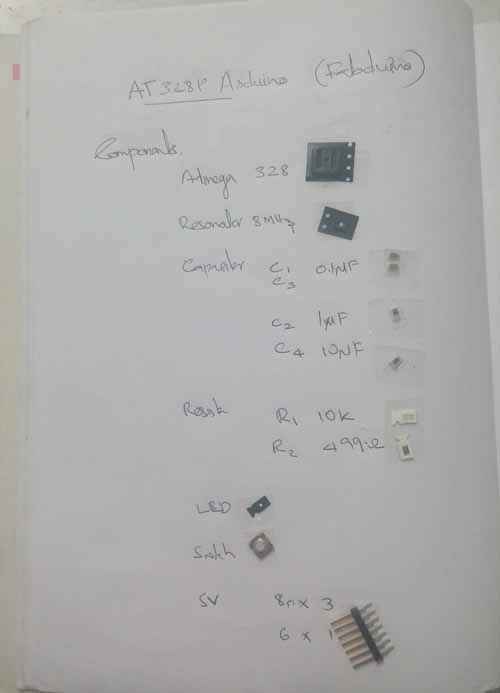 AT328P Arduino (Fabduino)
Components.
Atmega 328
Resonator 8MHz
Capacitor C1 0.1µF
C3
C2 1µF
C4 10µF
R1 10K
R2 499Ω
LED
Switch
5V
6 x 1